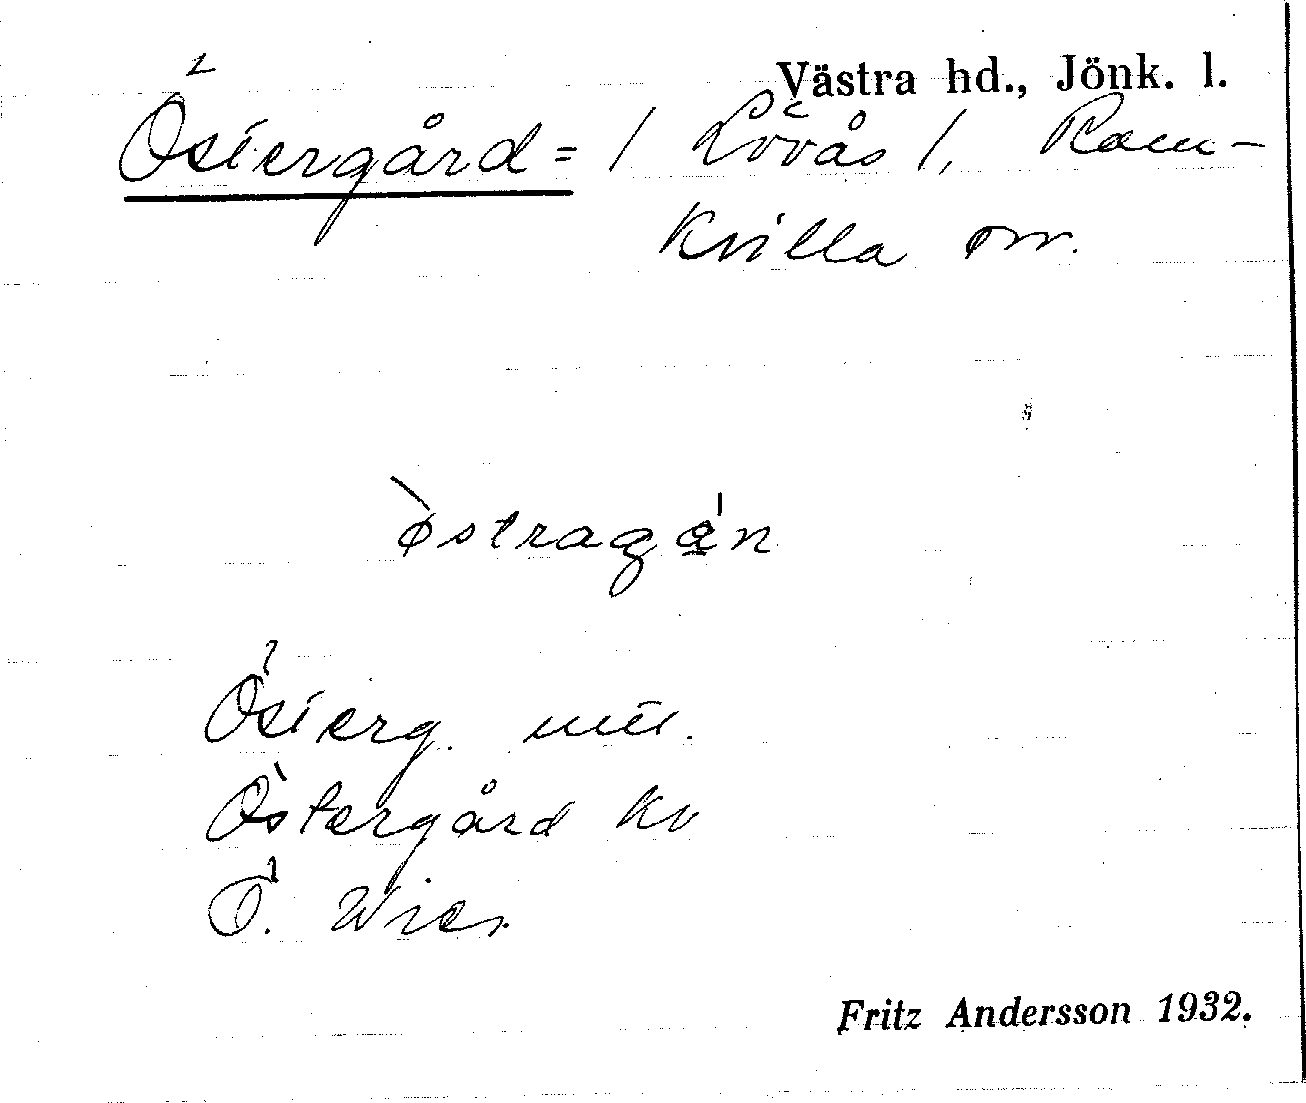 Västra hd., Jönk. l.
Östergård = / Lövås /, Ram-
kvilla sn.
östragán
Österg. mtl.
Östergård kv
Ö. Wies.
Fritz Andersson 1932.